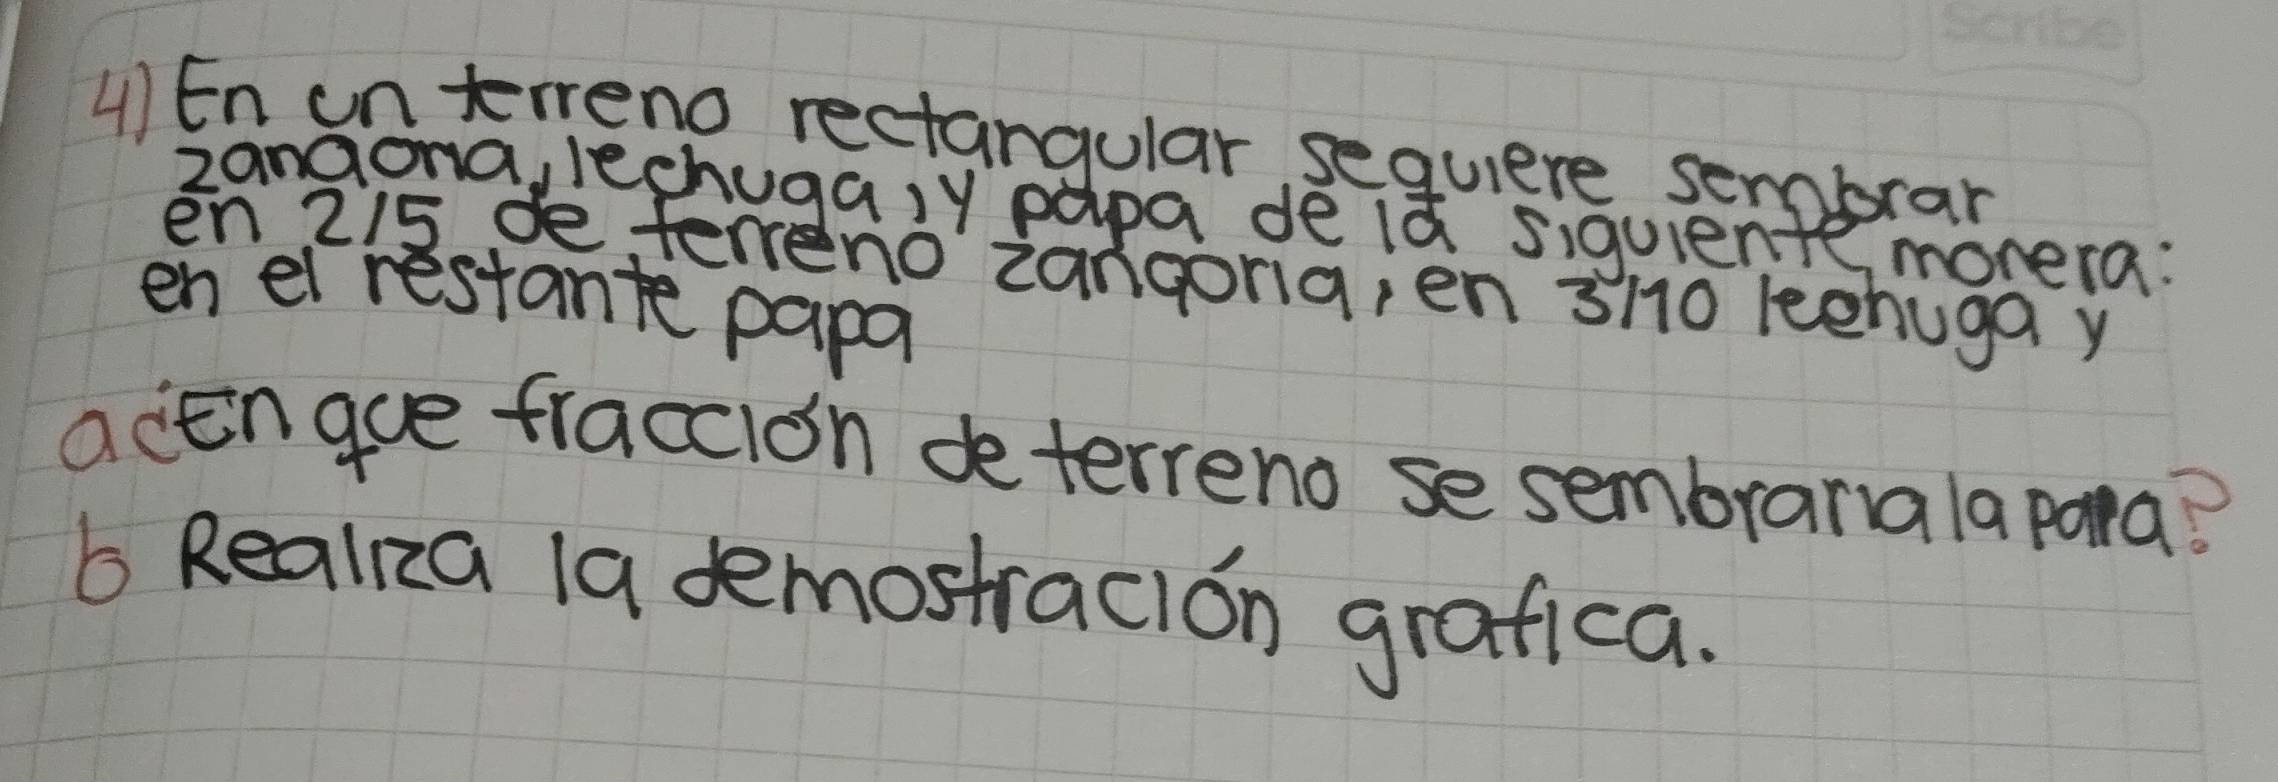 Scribe
4) En un terreno rectangular sequiere sembrar
zanaoria, lechuga, y papa de la siguiente monera:
en 2/5 de terreno zangoria, en 3/10 lechuga y
en el restante papa
a ¿En que fracción de terreno se sembraria la papa?
b Realiza la demostración grafica.